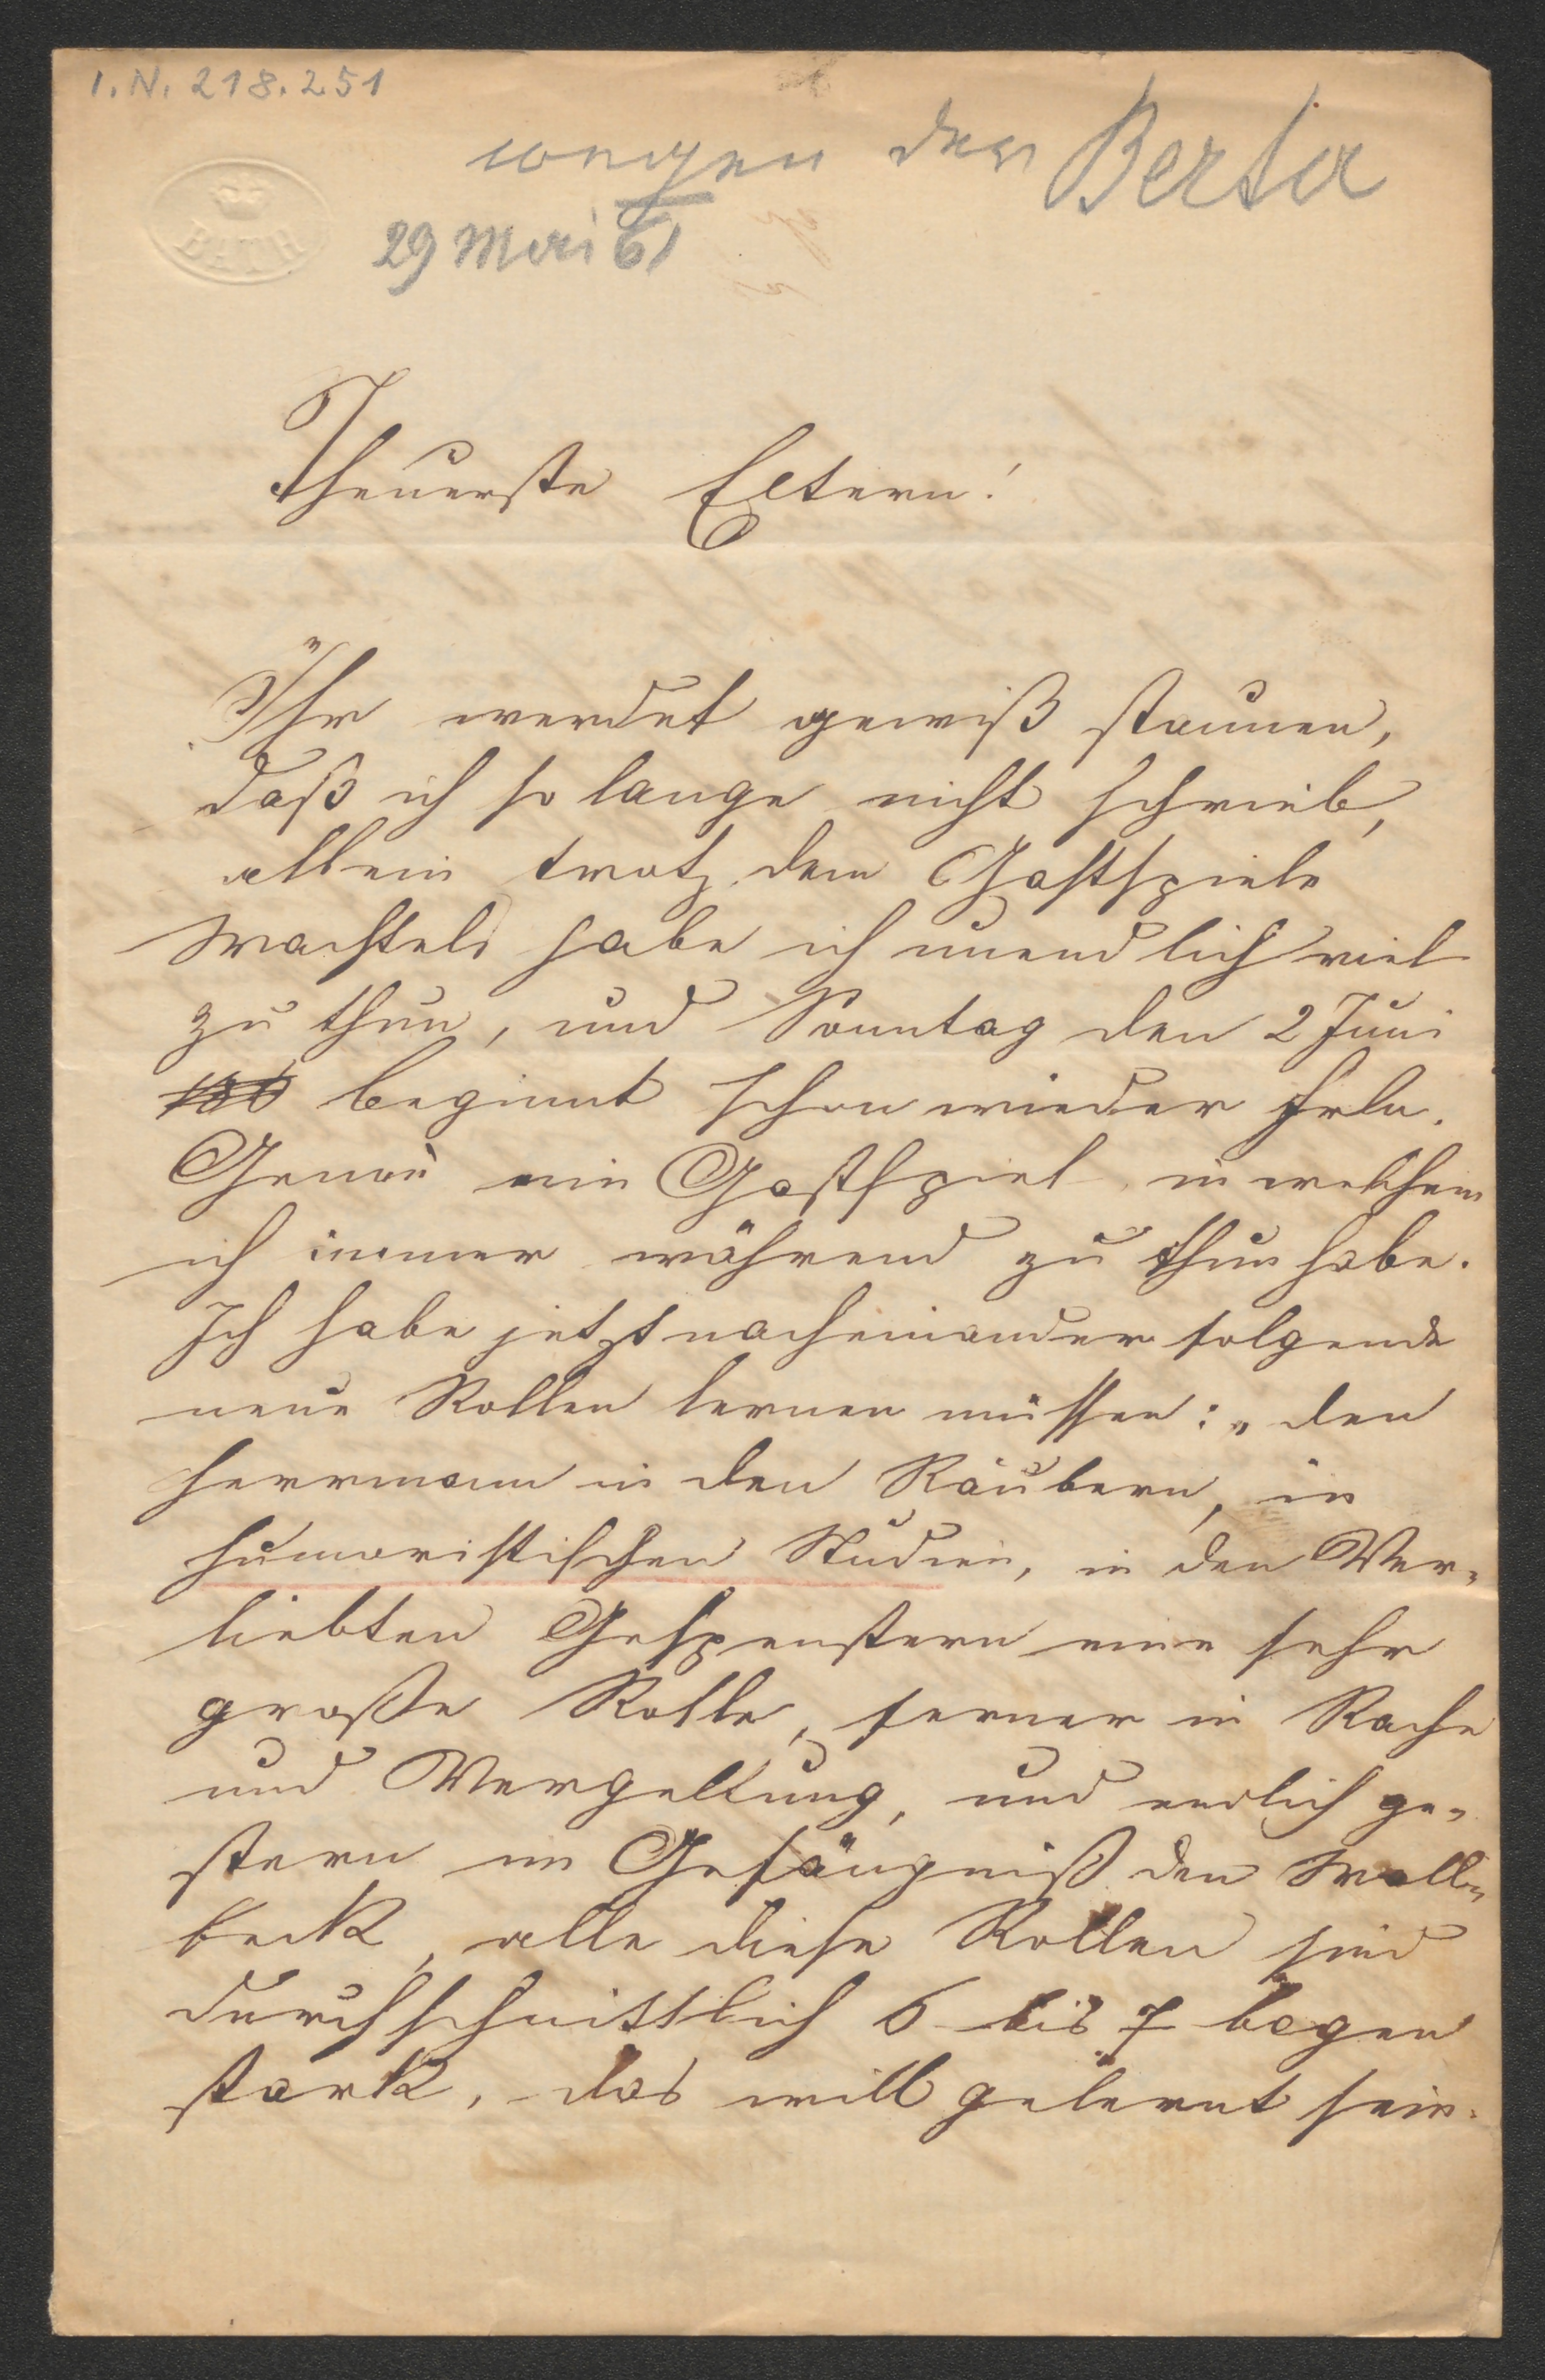 I.N. 218.251
wegen der Berta
BATH
29 Mai 61
Theuerste Eltern!
Ihr werdet gewiß staunen,
daß ich so lange nicht schrieb,
allein trotz dem Gastspiele
Wachtels habe ich unendlich viel
zu thun, und Sonntag den 2 Juni
beginnt schon wieder Frln.
Genoè ein Gastspiel in welchem
ich immer während zu thun habe.
Ich habe jetzt nacheinander folgende
neue Rollen lernen müssen: „den
Herrmann in den Räubern, in
humoristischen Studien, in den Ver-
liebten Gespenstern eine sehr
große Rolle, ferner in Rache
und Vergeltung, und endlich ge-
stern im Gefängniß den Wall-
beck, alle diese Rollen sind
durchschnittlich 6 bis 7 bogen
stark, das will gelernt sein.